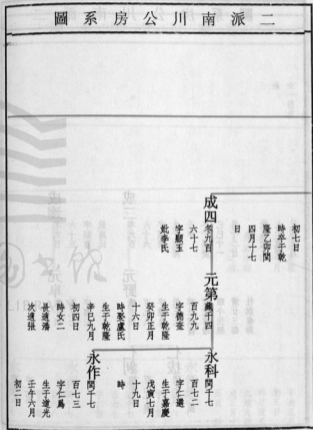 二派南川公房系圖
初七日
時卒于乾
隆乙卯閏
四月十七
日
成四
冬九百
六十七
字顯玉
妣李氏
元第
藏千四
百九九
字德奎
生于乾隆
癸卯正月
十六日
時娶盧氏
生于乾隆
辛巳九月
初四日
時女二
長適潘
次適張
永科
閏千七
百七二
字仁選
生于嘉慶
戊寅七月
十九日
時
永作
閏千七
百七三
字仁爲
生于道光
壬午六月
初二日